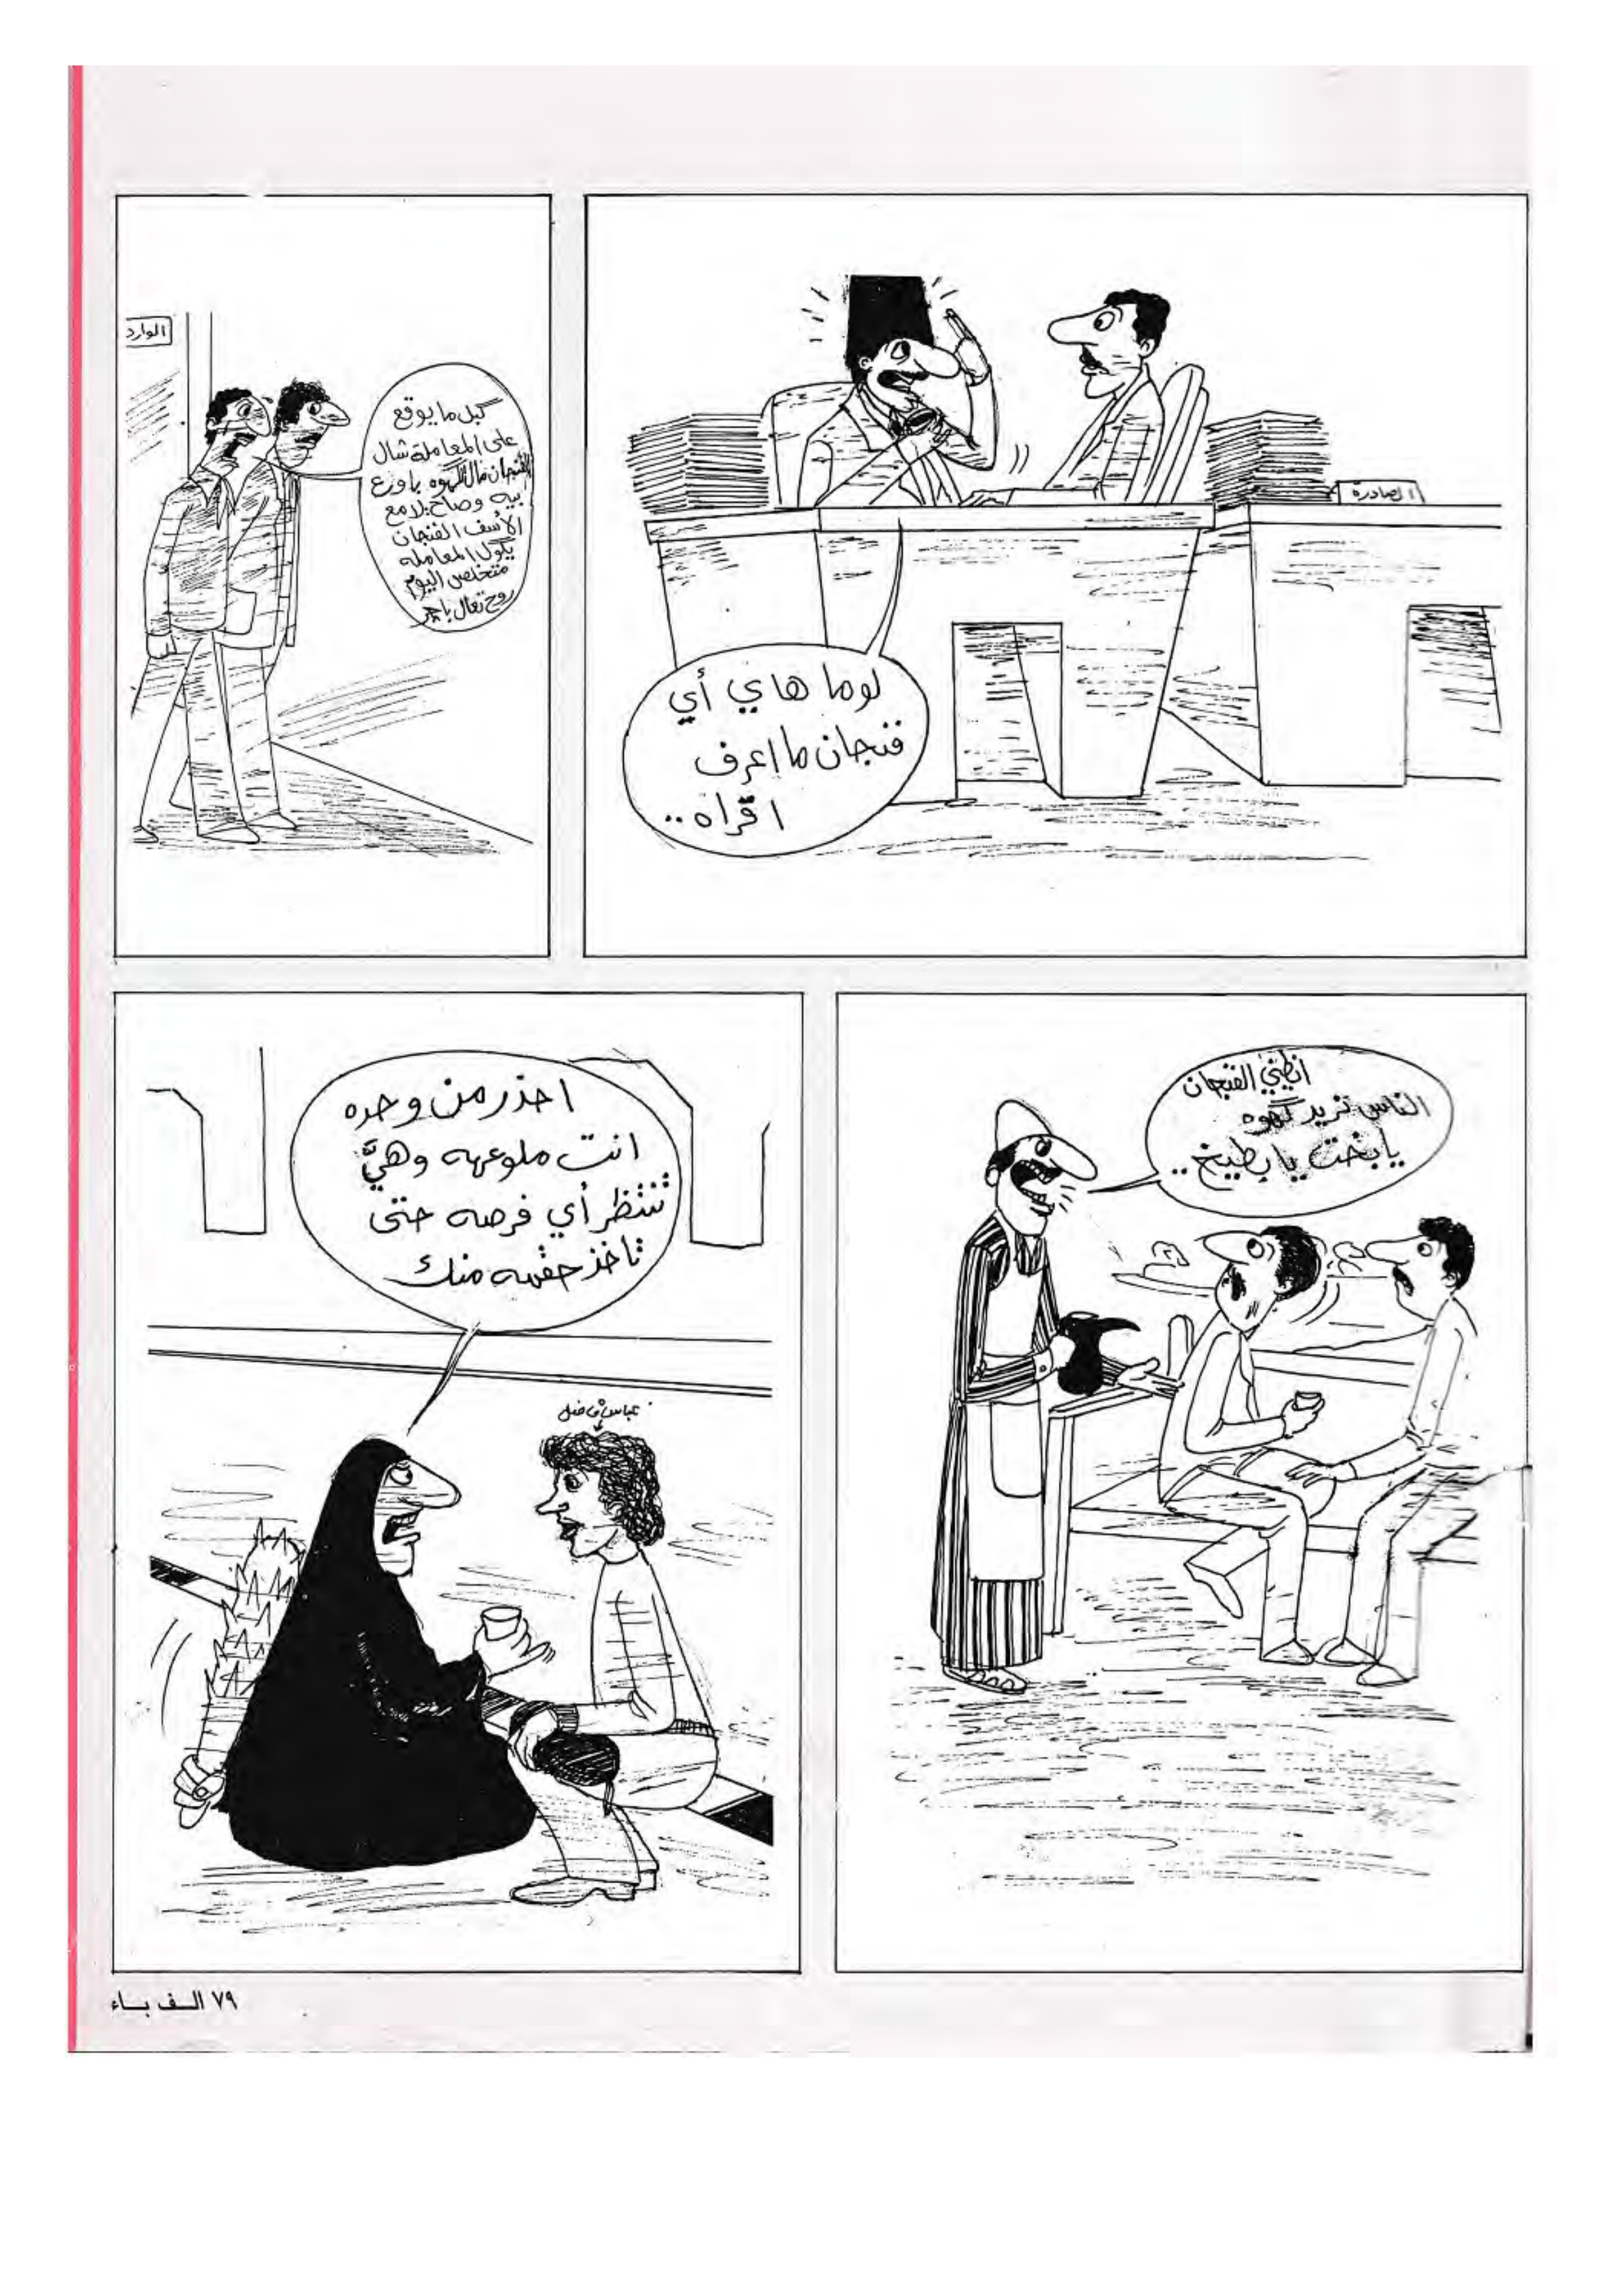 الصادرة
لوما هاي أي
فنجان ما اعرف
اقراه..
الوارد
گبل ما يوقع
على المعاملة شال
الفنجان مال الگهوه باوزع
بيه وصاح يلا مع
الأسف الفنجان
يگول المعامله
متخلص اليوم
روح تعال باچر
انطيني الفنجان
الناس تريد گهوه
يا بخت يا بطيخ..
احذر من وحده
انت ملوعهه وهيَّ
تنتظر أي فرصه حتى
تاخذ حقهه منك
عباس فاضل
٧٩ الف باء